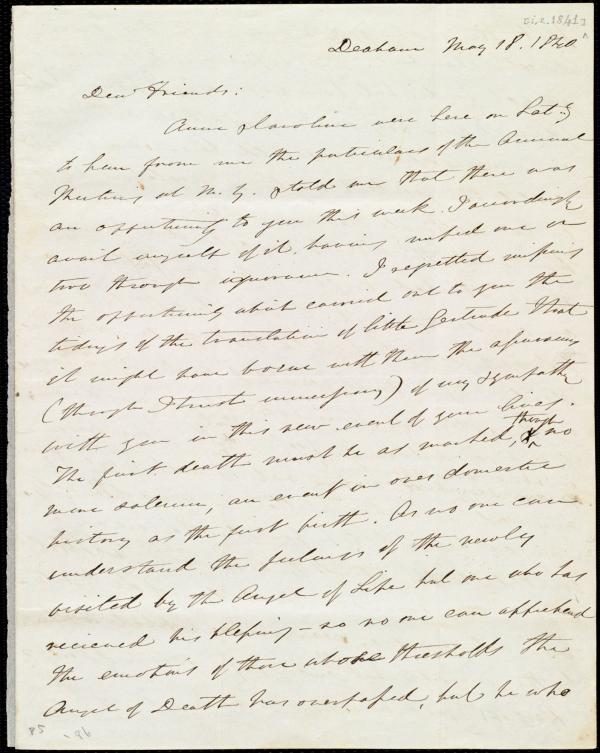 [i.e. 1841]
Dedham May 18. 1840.
Dear Friends:
Anne & Caroline were here on Sat.y
to hear from me the particulars of the Annual
Meeting at N.Y. & told me that there was
an opportunity to you this week. I accordingly
avail myself of it, having missed one or
two through ignorance. I regretted missing
the opportunity which carried out to you the
tidings of the translation of little Gertrude that
it might have borne with them the assurance
(though I trust unnecessary) of my sympathy
with you in this new event of your lives.
The first death must be as marked, though no
more solemn, an event in ones domestic
history as the first birth. As no one can
understand the feelings of the newly
visited by the Angel of Life but one who has
received his blessing – so no one can apprehend
the emotions of those whose thresholds the
Angel of Death has overpassed, but he who
85
96